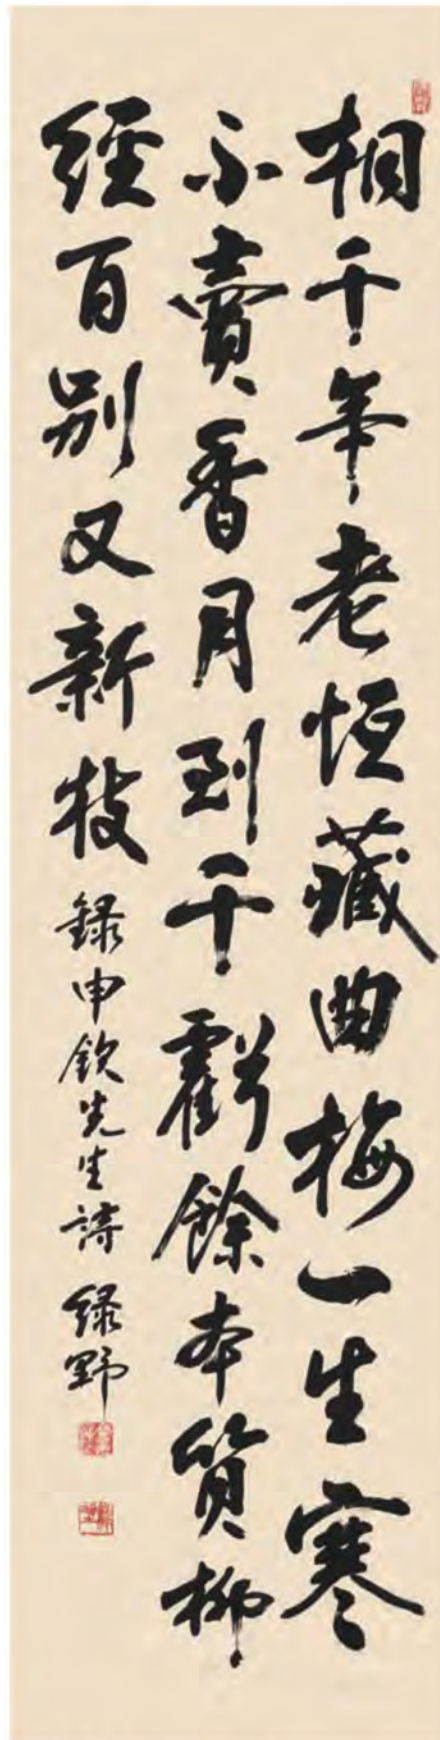 桐千年老恒藏曲梅一生寒
不賣香月到千虧餘本質柳
經百別又新枝 録申欽先生詩 緑野